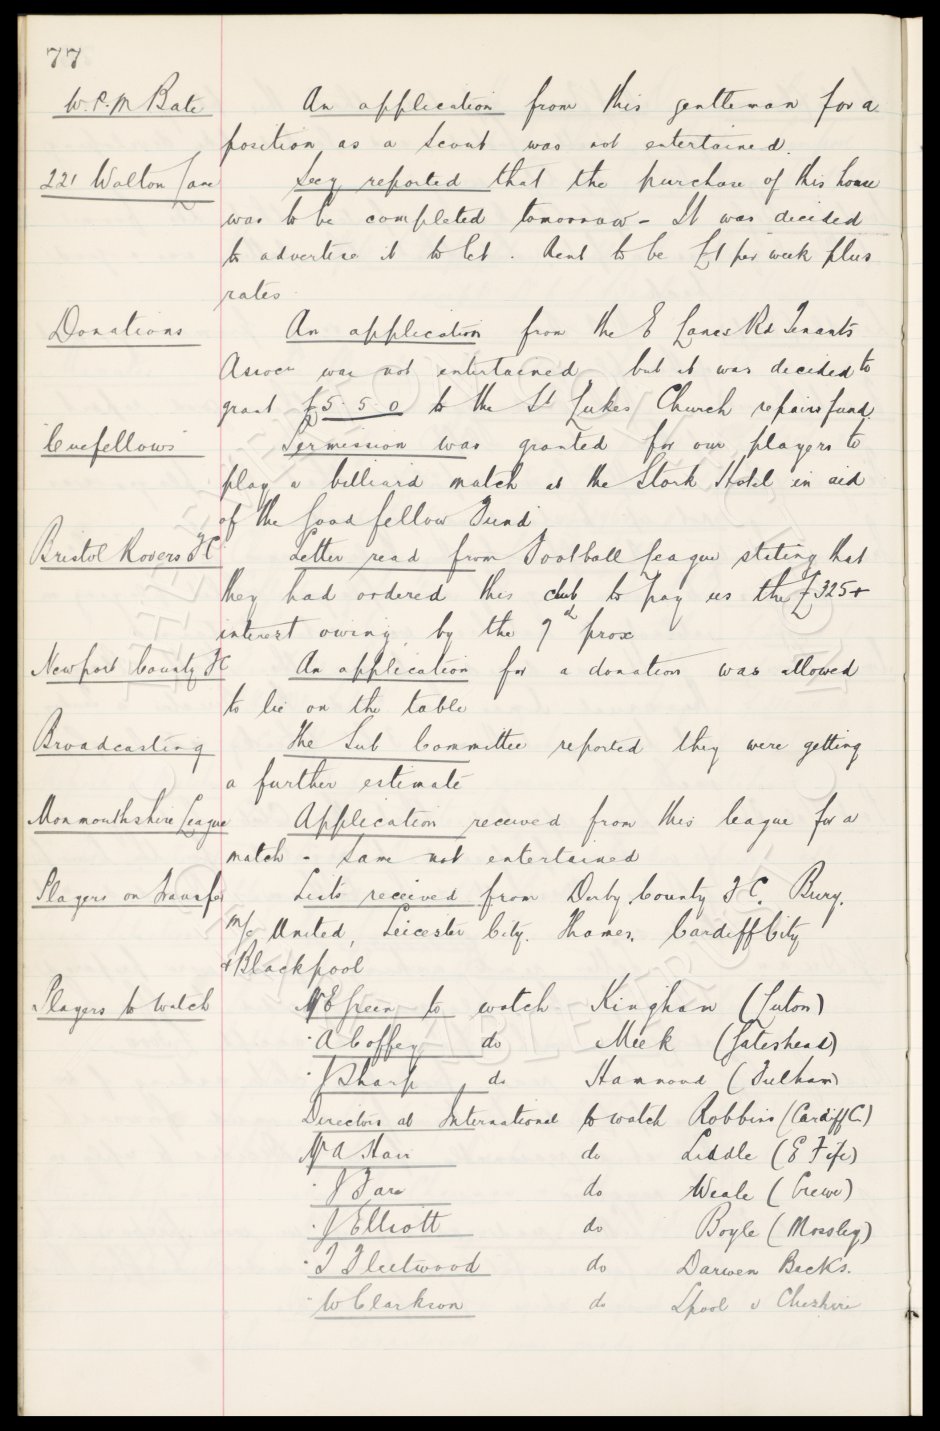 77
W. P. M Bate An application from this gentleman for a
position as a Scout was not entertained.
221 Walton Lane Secy reported that the purchase of this house
was to be completed tomorrow - It was decided
to advertise it to let. Rent to be £1 per week plus
rates
Donations An application from the E Lancs Rd Tenants
Assocn was not entertained but it was decided to
grant £5. 5. 0 to the St Lukes Church repairs fund.
"Cuefellows" Permission was granted for our players to
play a billiard match at the Stork Hotel in aid
of the Goodfellow Fund
Bristol Rovers FC Letter read from Football League stating that
they had ordered this club to pay us the £325 +
interest owing by the 9th prox
Newport County FC An application for a donation was allowed
to lie on the table
Broadcasting The Sub Committee reported they were getting
a further estimate
Monmouthshire League Application received from this league for a
match - Same not entertained
Players on transfer Lists received from Derby County FC. Bury.
M/c United, Leicester City. Thames. Cardiff City
& Blackpool
Players to Watch Mr E Green to watch Kingham (Luton)
" A Coffey do Meek (Gateshead)
" J Sharp do Hammond (Fulham)
Directors at International to watch Robbins (Cardiff C)
Mr A Hair do Liddle (E Fife)
" J Fare do Weale (Crewe)
" J Elliott do Boyle (Mossley)
" T Fleetwood do Darwen Backs.
" W Clarkson do Lpool v Cheshire